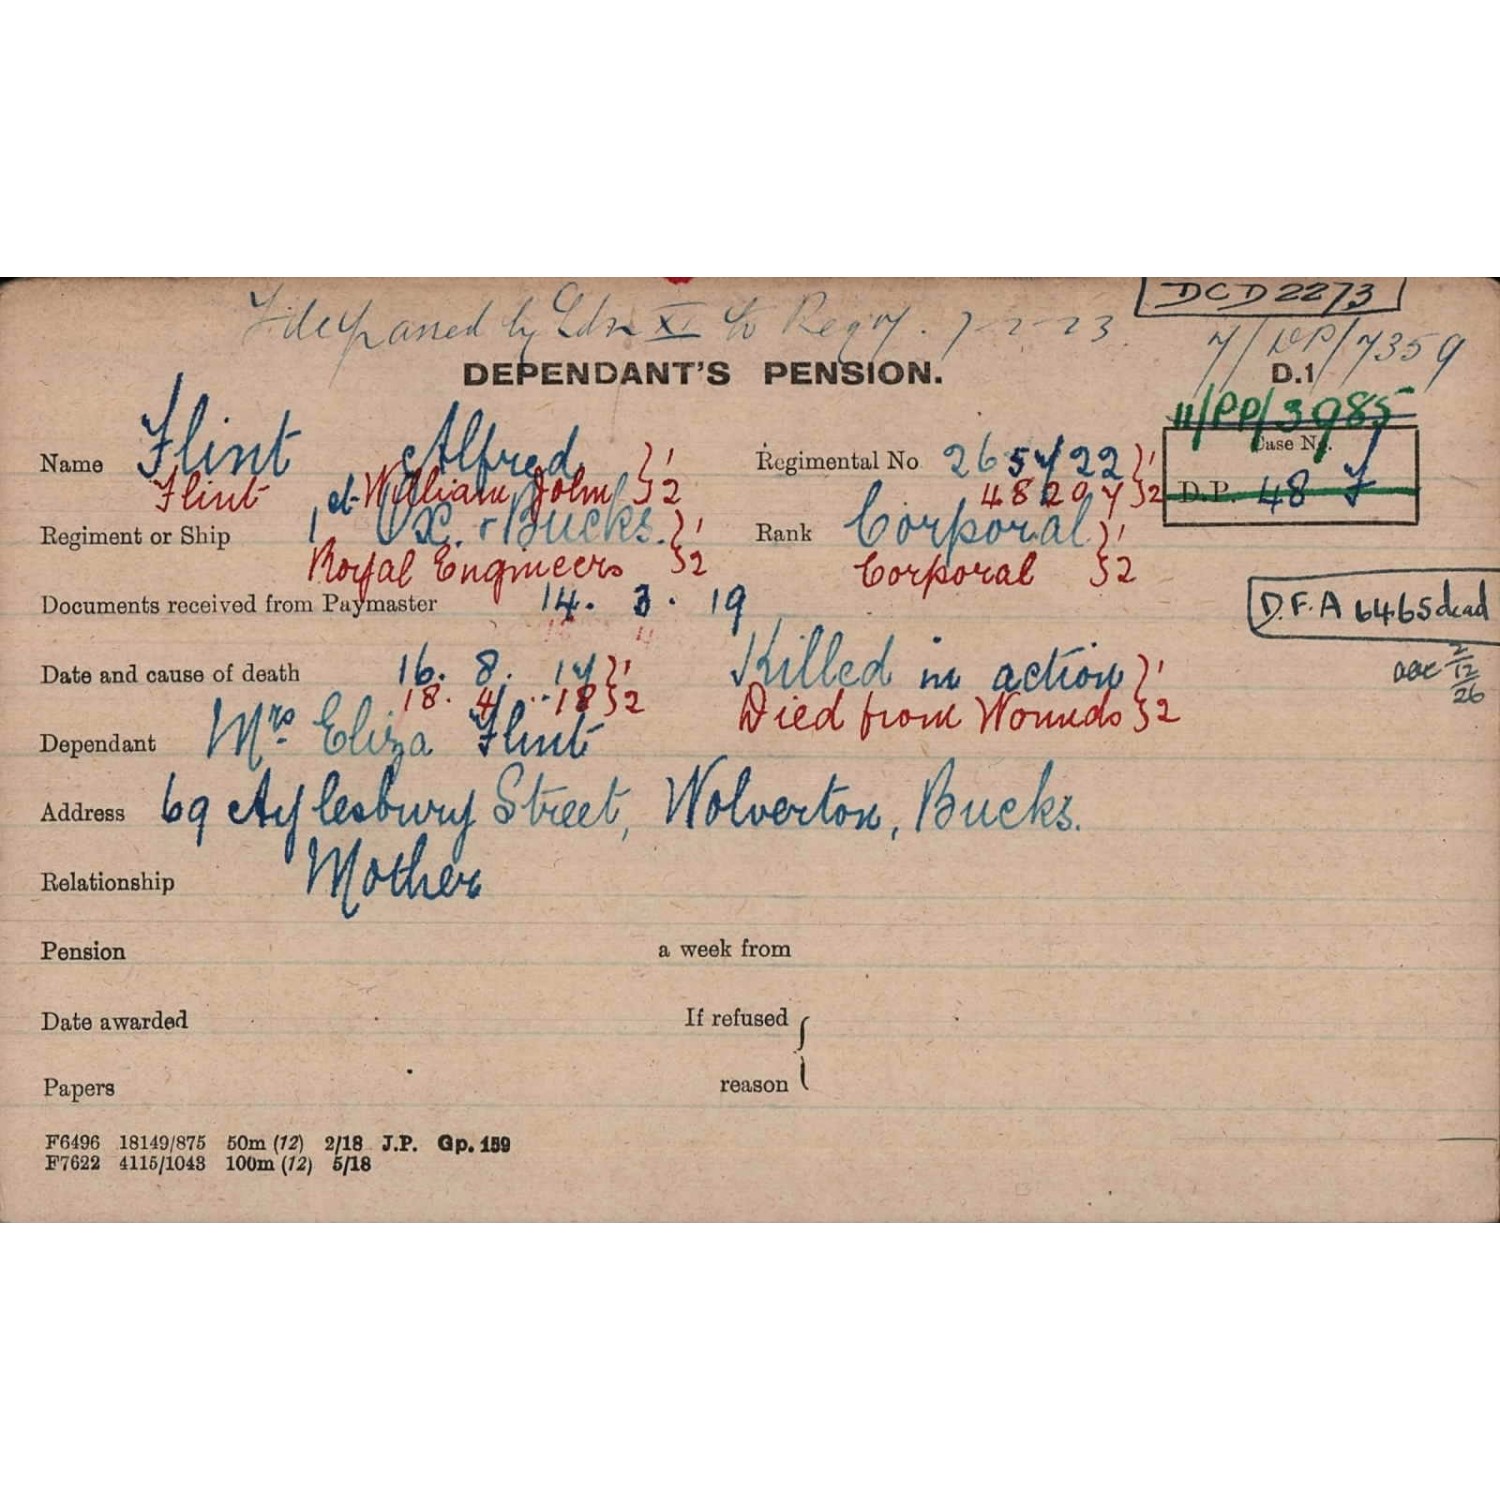 DCD 2273
File passed by Ldn XI to Regy. 7-2-23
7/DP/7359
DEPENDANT'S PENSION. D.1
11/PP/3985
Name Flint Alfred }1 Regimental No 265722 }1 Case No.
Flint William John }2 48207 }2 D.P. 48 F
Regiment or Ship 1 Ox. & Bucks. }1 Rank Corporal }1
Royal Engineers }2 Corporal }2
Documents received from Paymaster 14. 3. 19
D.F.A 6465 dead
Date and cause of death 16. 8. 17 }1 Killed in action }1
2/12/26
18. 4. 18 }2 Died from Wounds }2
Dependant Mrs. Eliza Flint
Address 69 Aylesbury Street, Wolverton, Bucks.
Relationship Mother
Pension a week from
Date awarded If refused
Papers reason
F6496 18149/875 50m (12) 2/18 J.P. Gp. 159
F7622 4115/1043 100m (12) 5/18